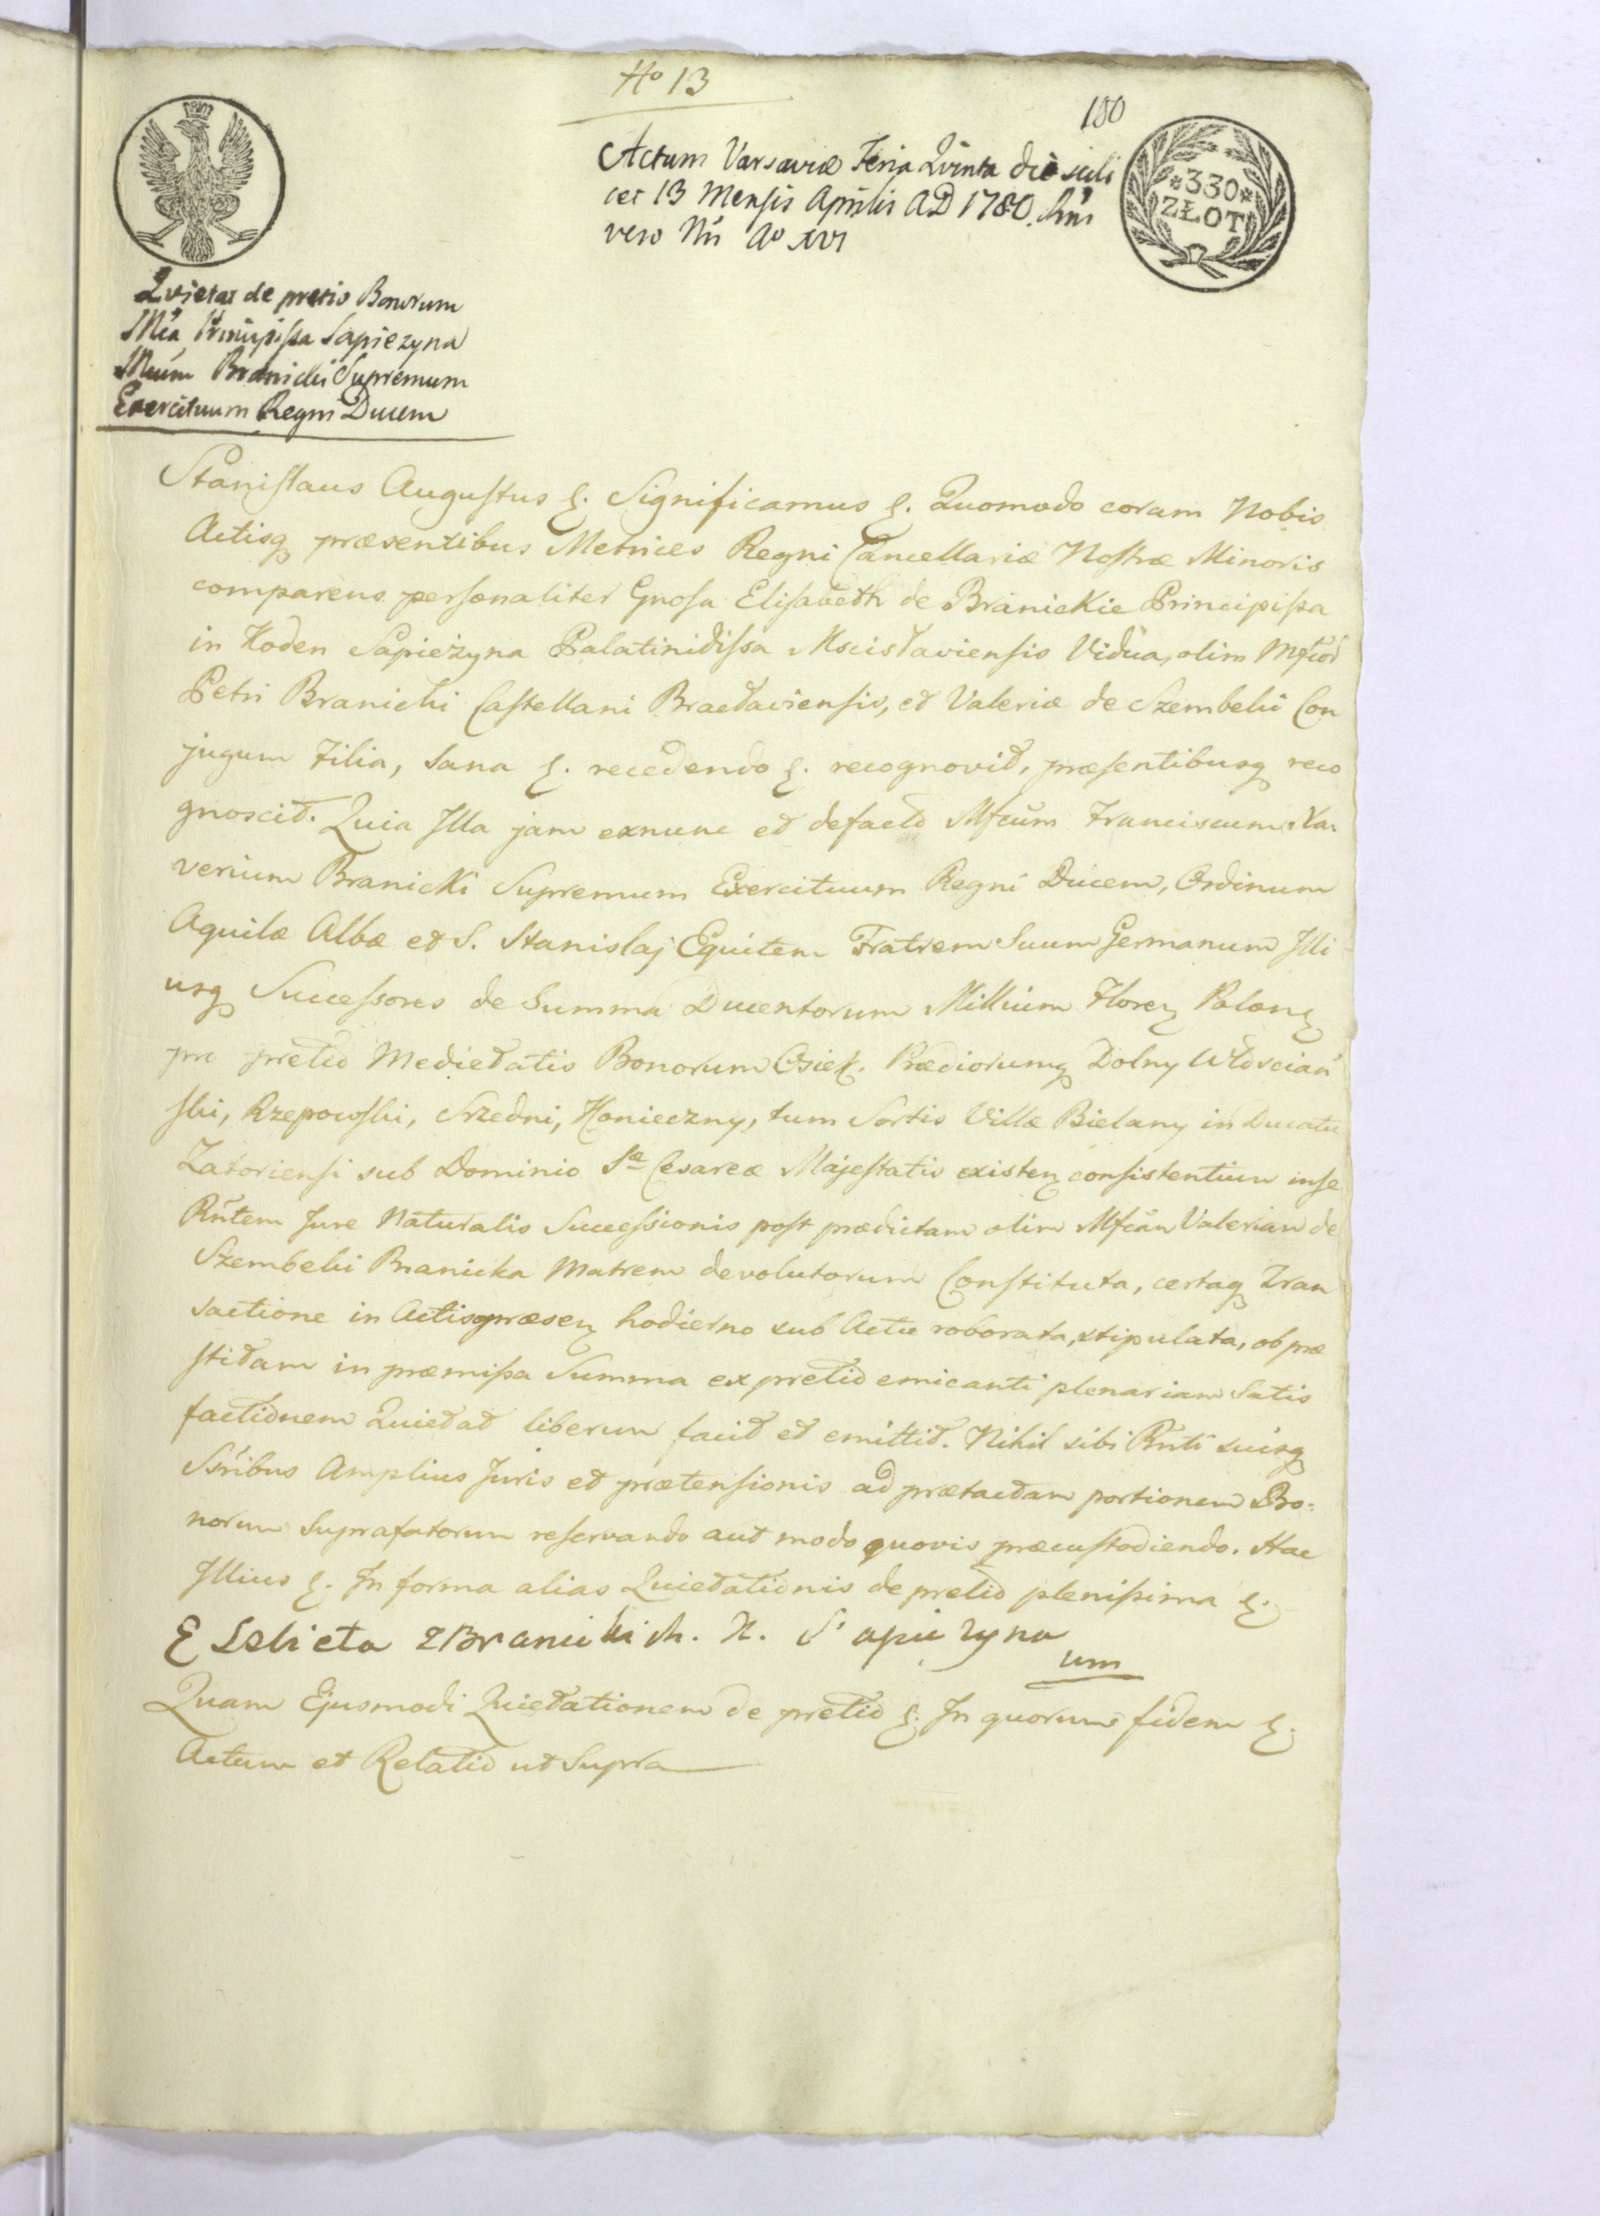 No 13
180
Actum Varsaviæ Feria Qvinta die scili
cet 13 Mensis Aprilis AD 1780.
vero Ao XVI
*330*
ZŁOT
Qvietat de pretio Bonorum
Principissa Sapiezyna
Branicki Supremum
Exercituum Regni Ducem
Stanislaus Augustus &. Significamus &. Quomodo coram Nobis
Actisq præsentibus Metrices Regni Cancellariæ Nostræ Minoris
comparens personaliter Gnosa Elisabeth de Branickie Principissa
in Koden Sapieżyna Palatinidissa Mscislaviensis Vidua, olim
Petri Branicki Castellani Braclaviensis, et Valeriæ de Szembeki Con
jugum Filia, sana &. recedendo &. recognovit, præsentibusq reco
gnoscit. Quia Illa jam exnunc et defacto Mfcum Franciscum Xa.
verium Branicki Supremum Exercituum Regni Ducem, Ordinum
Aquilæ Albæ et S. Stanislaj Equitem Fratrem Suum Germanum Illi
usq Successores de Summa Ducentorum Millium Floren Polon
pro pretio Medietatis Bonorum Osiek. Prædiorumq Dolny Włościań
ski, Rzepowski, Srzedni, Konieczny, tum Sortis Villæ Bielany in Ducatu
Zatoriensi sub Dominio Sæ Cesareæ Majestatis existen consistentium inse
Rntem Jure Naturalis Successionis post prædictam olim Mfcan Valeriam de
Szembeki Branicka Matrem devolutorum Constituta, certaq Tran
sactione in Actis præsen hodierno sub Actu roborata, stipulata, ob præ
stitam in præmissa Summa ex pretio emicanti plenariam Satis
factionem Quietat liberum facit et emittit. Nihil sibi Rnti suisq
Ssribus Amplius Juris et prætensionis ad prætactam portionem Bo=
norum Suprafatorum reservando aut modo quovis præcustodiendo. Hac
Illius &. In forma alias Quietationis de pretio plenissima &.
Elsbieta z Branickich K. Sapiezyna
um
Quam Ejusmodi Quietationem de pretio &. In quorum fidem &.
Actum et Relatio ut Supra